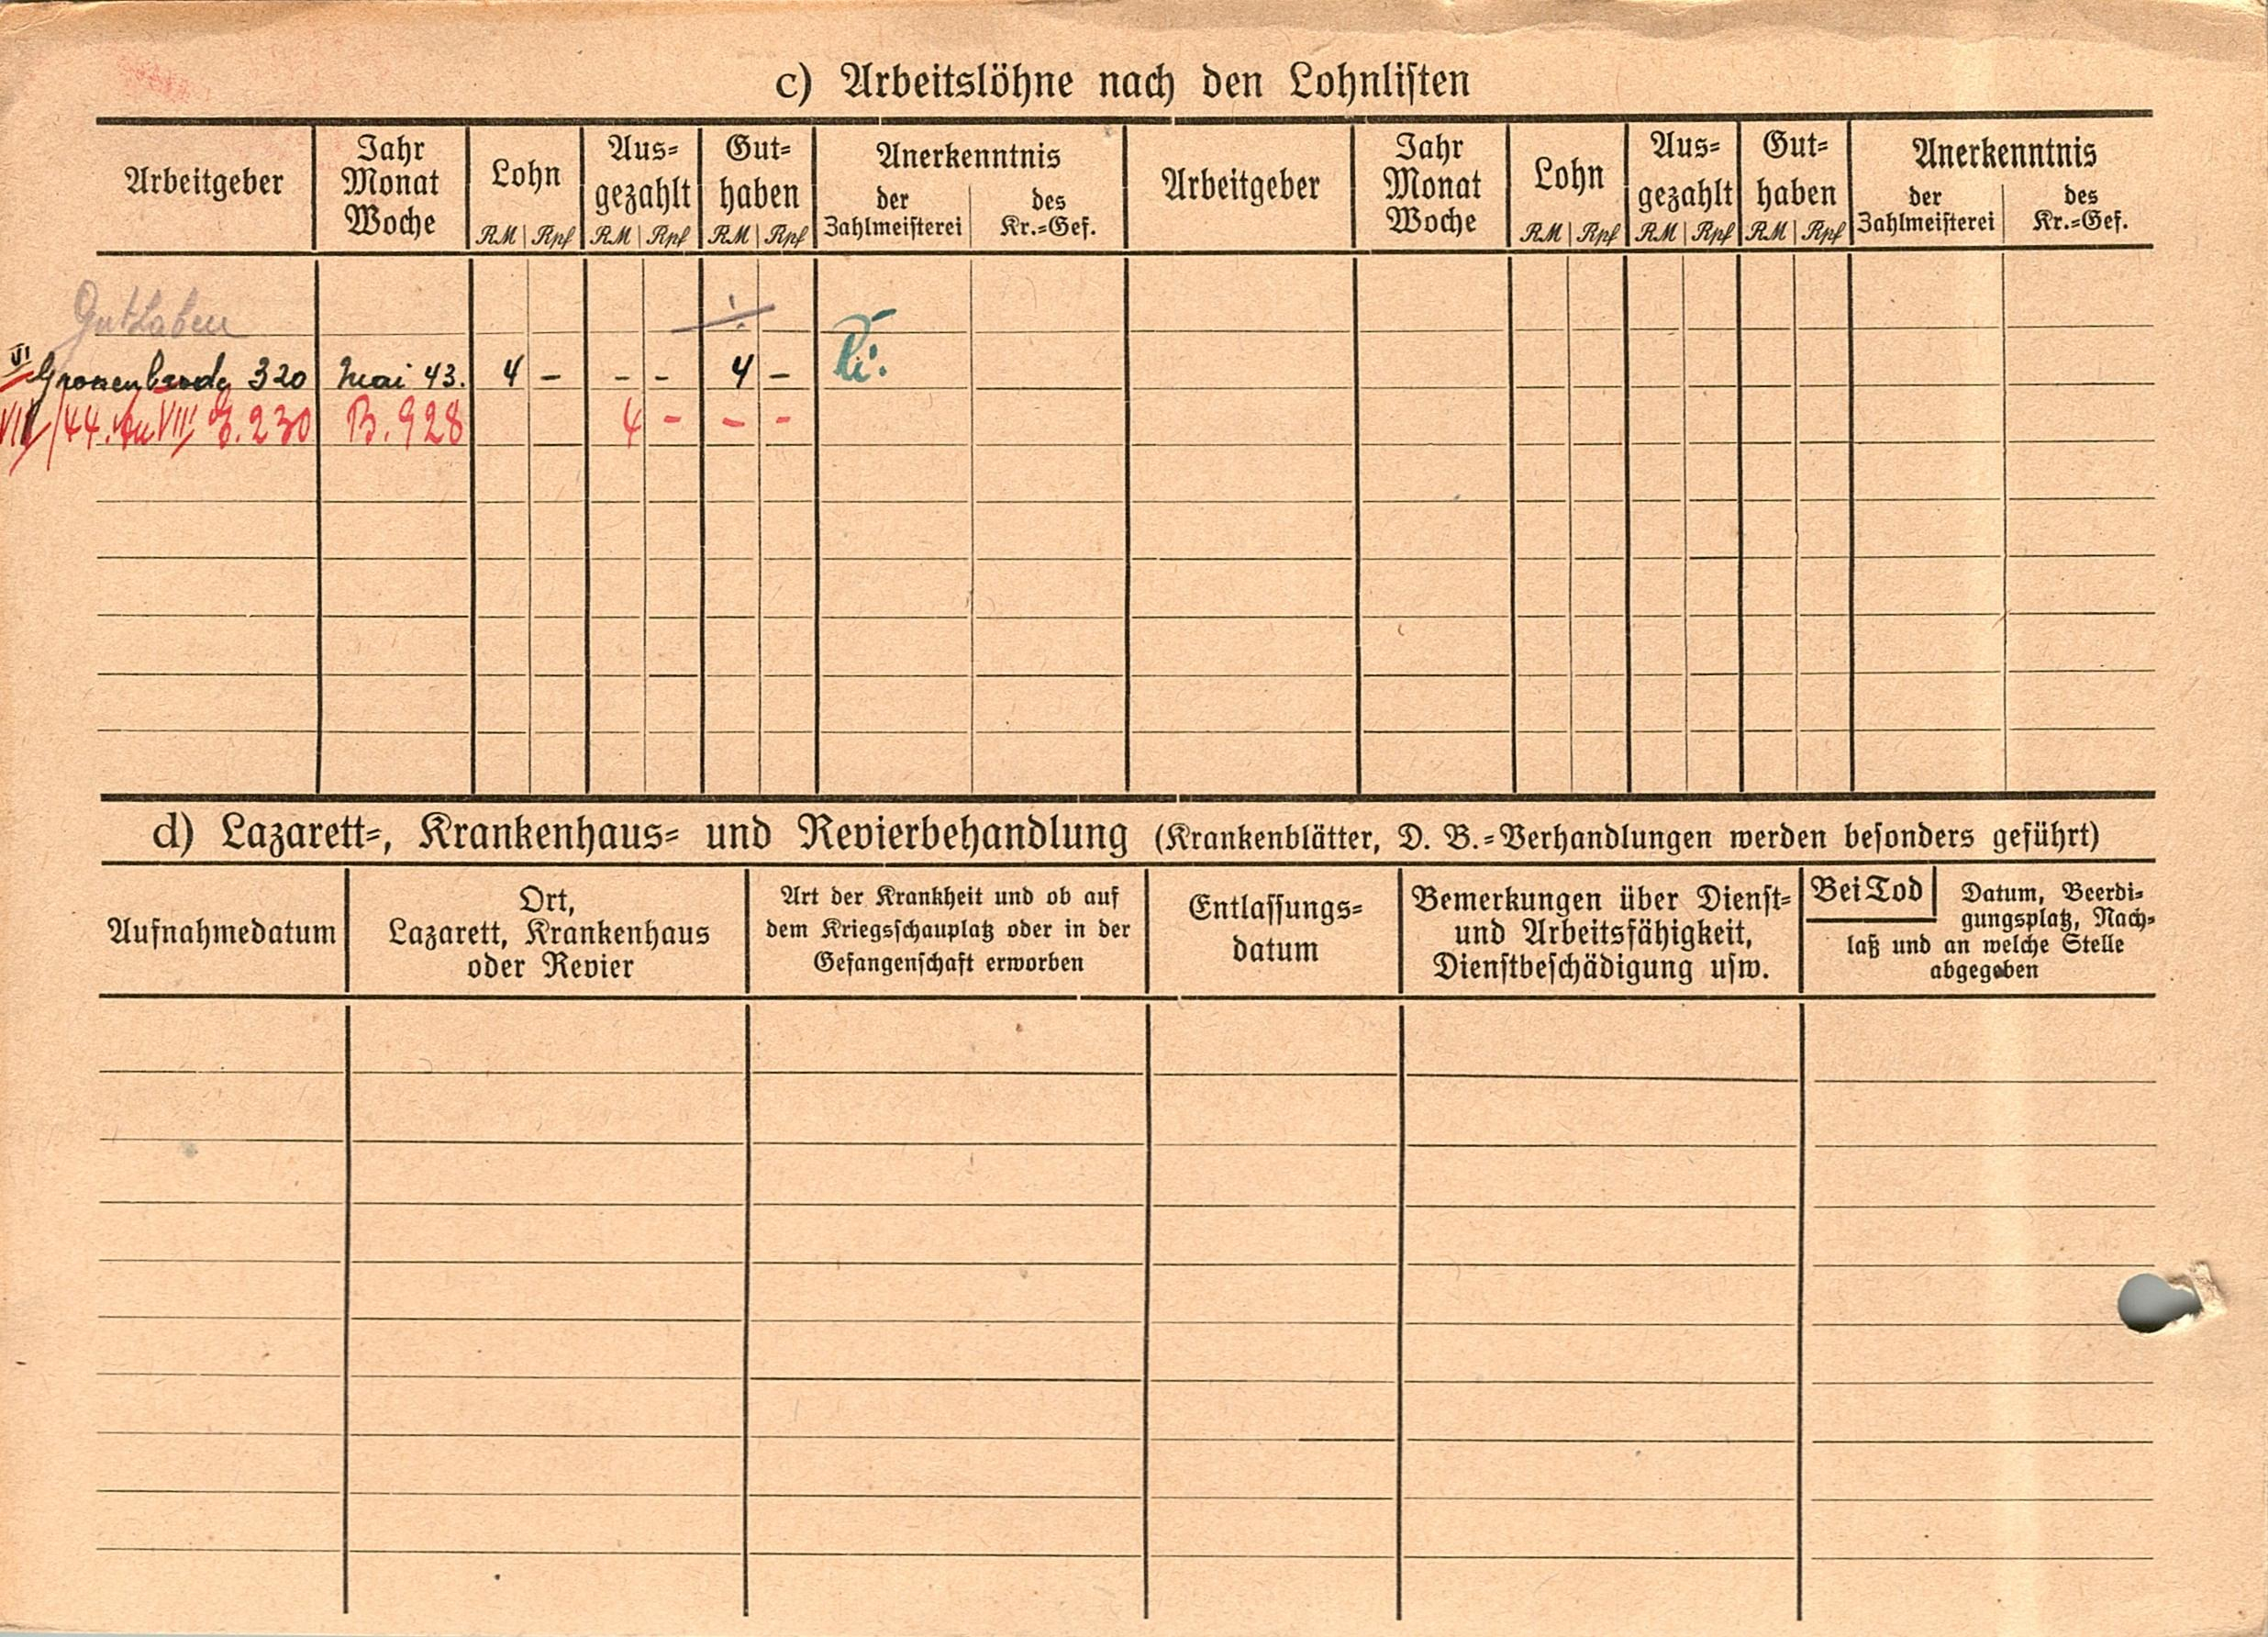 c) Arbeitslöhne nach den Lohnlisten
Arbeitgeber Jahr Monat Woche Lohn RM Rpf Aus-gezahlt RM Rpf Gut-haben RM Rpf Anerkenntnis der Zahlmeisterei des Kr.-Gef. Arbeitgeber Jahr Monat Woche Lohn RM Rpf Aus-gezahlt RM Rpf Gut-haben RM Rpf Anerkenntnis der Zahlmeisterei des Kr.-Gef.
Guthaben
VI Grossenbrode 320 Mai 43. 4 - - - 4 -
VII/44. An VIII 230 B. 928 4 - - -
d) Lazarett-, Krankenhaus- und Revierbehandlung (Krankenblätter, D. B.-Verhandlungen werden besonders geführt)
Aufnahmedatum
Ort,
Lazarett, Krankenhaus
oder Revier
Art der Krankheit und ob auf
dem Kriegsschauplatz oder in der
Gefangenschaft erworben
Entlassungs-
datum
Bemerkungen über Dienst-
und Arbeitsfähigkeit,
Dienstbeschädigung usw.
Bei Tod Datum, Beerdi-
gungsplatz, Nach-
laß und an welche Stelle
abgegeben